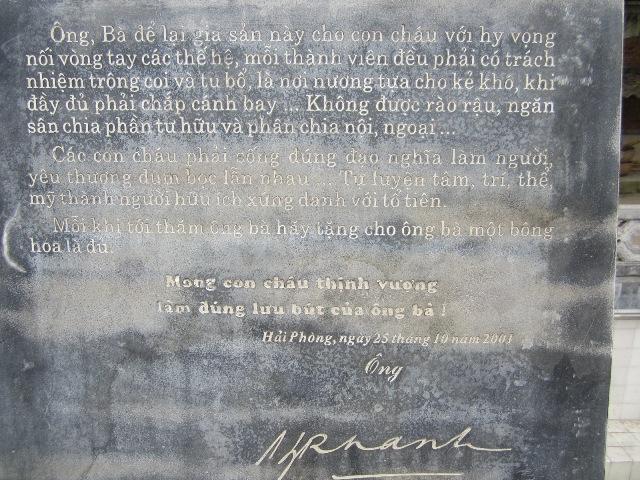 Ông, Bà để lại gia sản này cho con cháu với hy vọng
nối vòng tay các thế hệ, mỗi thành viên đều phải có trách
nhiệm trông coi và tu bổ, là nơi nương tựa cho kẻ khó, khi
đầy đủ phải chắp cánh bay ... Không được rào rậu, ngăn
sân chia phần tư hữu và phân chia nội, ngoại ...
Các con cháu phải sống đúng đạo nghĩa làm người,
yêu thương đùm bọc lẫn nhau ... Tự luyện tâm, trí, thể,
mỹ thành người hữu ích xứng danh với tổ tiên.
Mỗi khi tới thăm ông bà hãy tặng cho ông bà một bông
hoa là đủ.
Mong con cháu thịnh vượng
làm đúng lưu bút của ông bà !
Hải Phòng, ngày 25 tháng 10 năm 2001
Ông